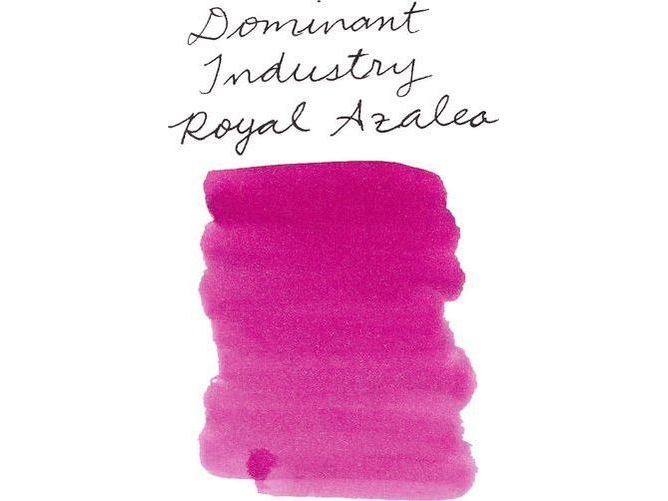 Dominant
Industry
Royal Azalea